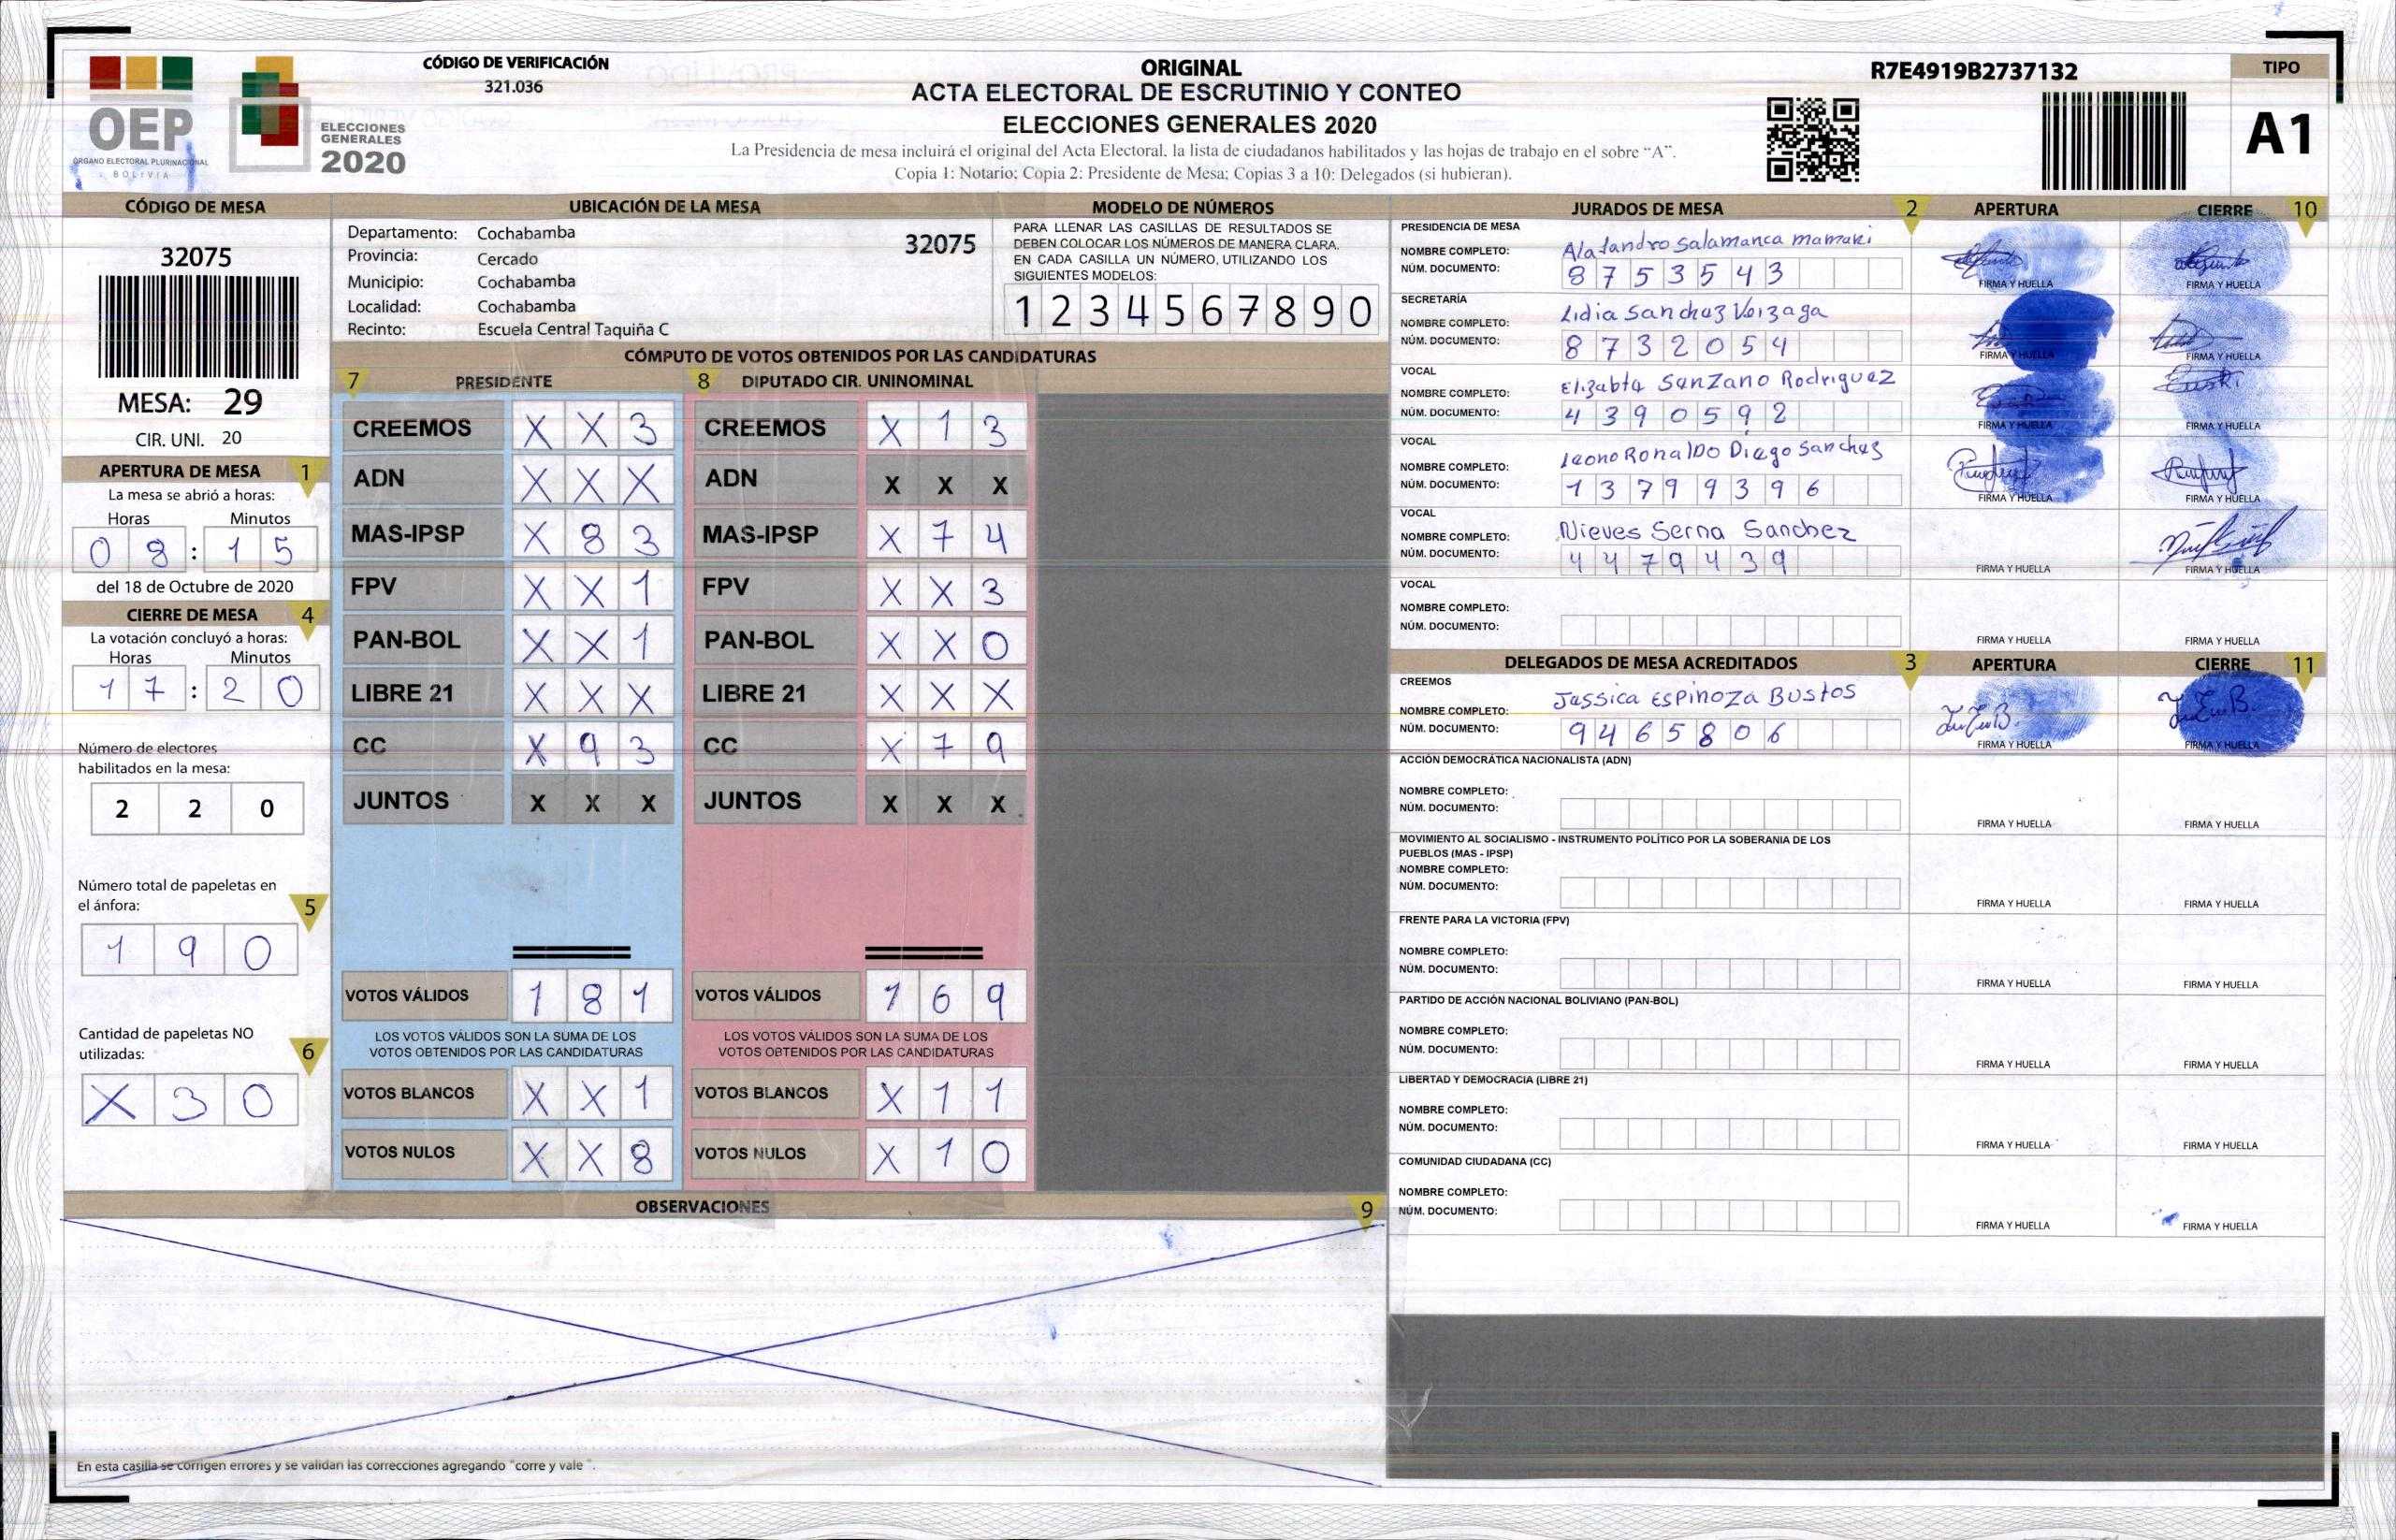 OEP
ÓRGANO ELECTORAL PLURINACIONAL
BOLIVIA
ELECCIONES
GENERALES
2020
CÓDIGO DE VERIFICACIÓN
321.036
ORIGINAL
ACTA ELECTORAL DE ESCRUTINIO Y CONTEO
ELECCIONES GENERALES 2020
La Presidencia de mesa incluirá el original del Acta Electoral, la lista de ciudadanos habilitados y las hojas de trabajo en el sobre “A”.
Copia 1: Notario; Copia 2: Presidente de Mesa; Copias 3 a 10: Delegados (si hubieran).
R7E4919B2737132
TIPO
A1
CÓDIGO DE MESA
32075
MESA: 29
CIR. UNI. 20
APERTURA DE MESA 1
La mesa se abrió a horas:
Horas Minutos
0 8 : 1 5
del 18 de Octubre de 2020
CIERRE DE MESA 4
La votación concluyó a horas:
Horas Minutos
1 7 : 2 0
Número de electores
habilitados en la mesa:
2 2 0
Número total de papeletas en
el ánfora: 5
1 9 0
Cantidad de papeletas NO
utilizadas: 6
X 3 0
UBICACIÓN DE LA MESA
Departamento: Cochabamba
Provincia: Cercado
Municipio: Cochabamba
Localidad: Cochabamba
Recinto: Escuela Central Taquiña C
32075
MODELO DE NÚMEROS
PARA LLENAR LAS CASILLAS DE RESULTADOS SE
DEBEN COLOCAR LOS NÚMEROS DE MANERA CLARA,
EN CADA CASILLA UN NÚMERO, UTILIZANDO LOS
SIGUIENTES MODELOS:
1 2 3 4 5 6 7 8 9 0
CÓMPUTO DE VOTOS OBTENIDOS POR LAS CANDIDATURAS
7 PRESIDENTE 8 DIPUTADO CIR. UNINOMINAL
CREEMOS X X 3 CREEMOS X 1 3
ADN X X X ADN X X X
MAS-IPSP X 8 3 MAS-IPSP X 7 4
FPV X X 1 FPV X X 3
PAN-BOL X X 1 PAN-BOL X X 0
LIBRE 21 X X X LIBRE 21 X X X
CC X 9 3 CC X 7 9
JUNTOS X X X JUNTOS X X X
VOTOS VÁLIDOS 1 8 1 VOTOS VÁLIDOS 1 6 9
LOS VOTOS VÁLIDOS SON LA SUMA DE LOS LOS VOTOS VÁLIDOS SON LA SUMA DE LOS
VOTOS OBTENIDOS POR LAS CANDIDATURAS VOTOS OBTENIDOS POR LAS CANDIDATURAS
VOTOS BLANCOS X X 1 VOTOS BLANCOS X 1 1
VOTOS NULOS X X 8 VOTOS NULOS X 1 0
OBSERVACIONES 9
En esta casilla se corrigen errores y se validan las correcciones agregando "corre y vale ".
JURADOS DE MESA 2 APERTURA CIERRE 10
PRESIDENCIA DE MESA
NOMBRE COMPLETO: Alajandro Salamanca mamani
NÚM. DOCUMENTO: 8 7 5 3 5 4 3 FIRMA Y HUELLA FIRMA Y HUELLA
SECRETARÍA
NOMBRE COMPLETO: Lidia Sanchez Veizaga
NÚM. DOCUMENTO: 8 7 3 2 0 5 4 FIRMA Y HUELLA FIRMA Y HUELLA
VOCAL
NOMBRE COMPLETO: Elizabta Sanzano Rodriguez
NÚM. DOCUMENTO: 4 3 9 0 5 9 2 FIRMA Y HUELLA FIRMA Y HUELLA
VOCAL
NOMBRE COMPLETO: Ronaldo Diego Sanchez
NÚM. DOCUMENTO: 1 3 7 9 9 3 9 6 FIRMA Y HUELLA FIRMA Y HUELLA
VOCAL
NOMBRE COMPLETO: Nieves Serna Sanchez
NÚM. DOCUMENTO: 4 4 7 9 4 3 9 FIRMA Y HUELLA FIRMA Y HUELLA
VOCAL
NOMBRE COMPLETO:
NÚM. DOCUMENTO: FIRMA Y HUELLA FIRMA Y HUELLA
DELEGADOS DE MESA ACREDITADOS 3 APERTURA CIERRE 11
CREEMOS
NOMBRE COMPLETO: Jessica Espinoza Bustos
NÚM. DOCUMENTO: 9 4 6 5 8 0 6 FIRMA Y HUELLA FIRMA Y HUELLA
ACCIÓN DEMOCRÁTICA NACIONALISTA (ADN)
NOMBRE COMPLETO:
NÚM. DOCUMENTO: FIRMA Y HUELLA FIRMA Y HUELLA
MOVIMIENTO AL SOCIALISMO - INSTRUMENTO POLÍTICO POR LA SOBERANIA DE LOS
PUEBLOS (MAS - IPSP)
NOMBRE COMPLETO:
NÚM. DOCUMENTO: FIRMA Y HUELLA FIRMA Y HUELLA
FRENTE PARA LA VICTORIA (FPV)
NOMBRE COMPLETO:
NÚM. DOCUMENTO: FIRMA Y HUELLA FIRMA Y HUELLA
PARTIDO DE ACCIÓN NACIONAL BOLIVIANO (PAN-BOL)
NOMBRE COMPLETO:
NÚM. DOCUMENTO: FIRMA Y HUELLA FIRMA Y HUELLA
LIBERTAD Y DEMOCRACIA (LIBRE 21)
NOMBRE COMPLETO:
NÚM. DOCUMENTO: FIRMA Y HUELLA FIRMA Y HUELLA
COMUNIDAD CIUDADANA (CC)
NOMBRE COMPLETO:
NÚM. DOCUMENTO: FIRMA Y HUELLA FIRMA Y HUELLA